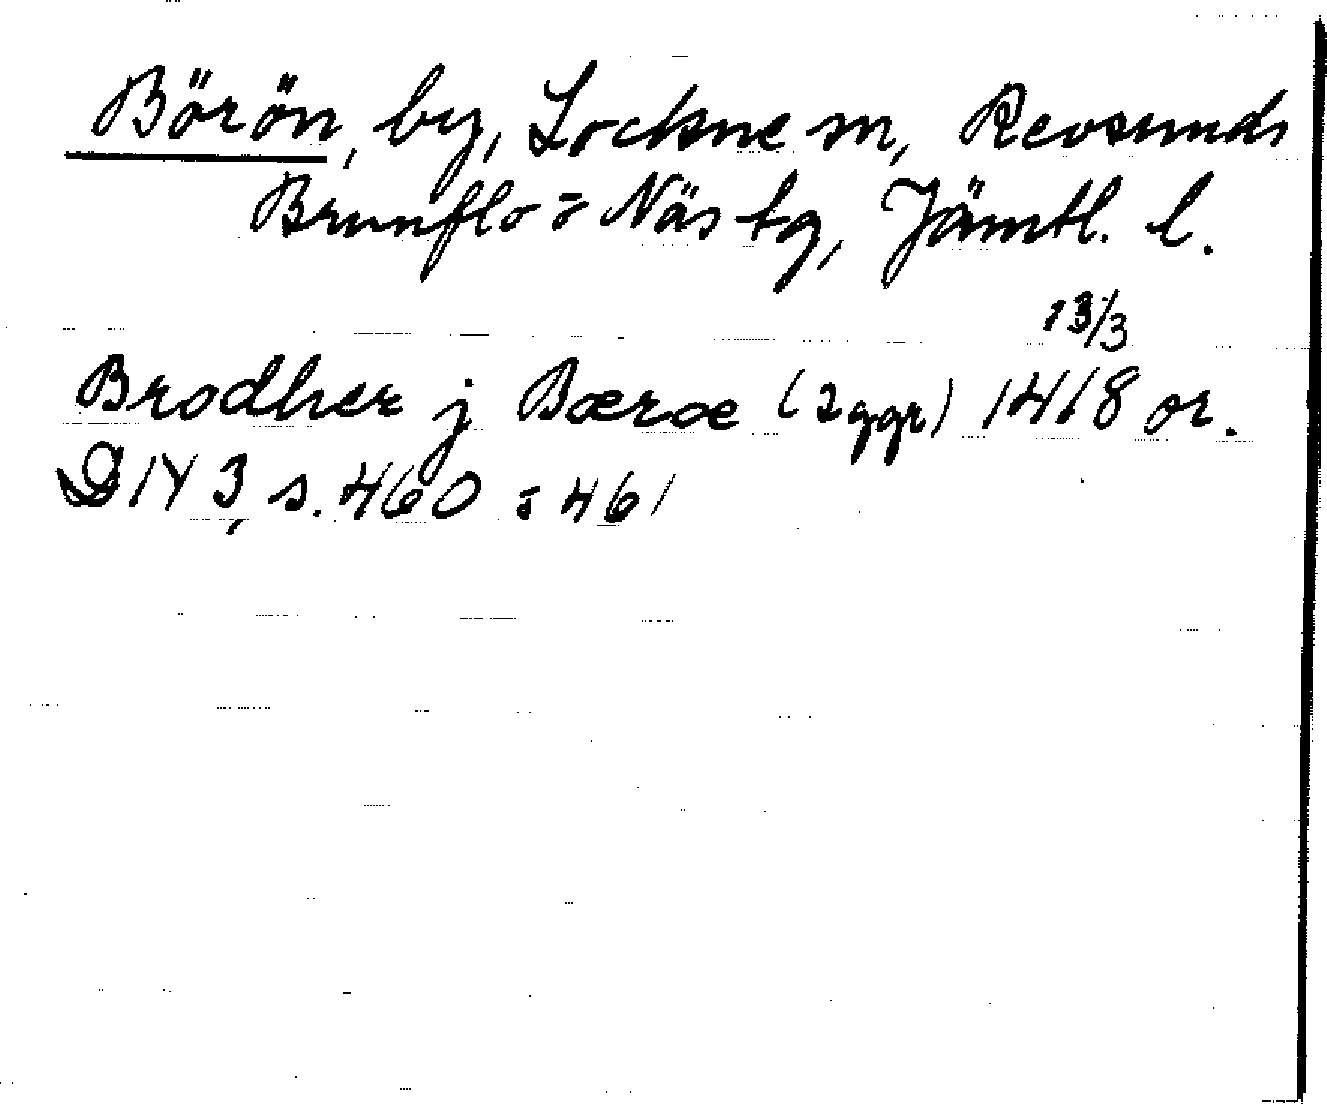 Börön, by, Lockne sn, Revsunds
Brunflo o Näs tg, Jämtl. l.
13/3
Brodher j Bærœ (2 ggr) 1418 or.
D IV 3, s. 460 o 461